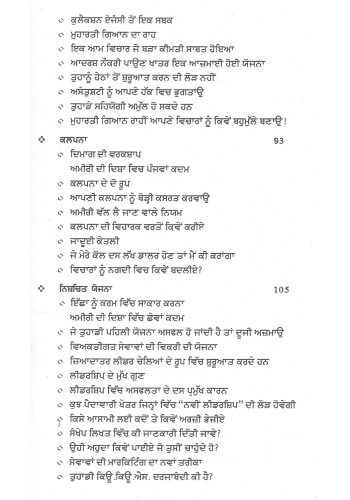 ਕੁਲੈਕਸ਼ਨ ਏਜੰਸੀ ਤੋਂ ਇਕ ਸਬਕ
ਮੁਹਾਰਤੀ ਗਿਆਨ ਦਾ ਰਾਹ
ਇਕ ਆਮ ਵਿਚਾਰ ਜੋ ਬੜਾ ਕੀਮਤੀ ਸਾਬਤ ਹੋਇਆ
ਆਦਰਸ਼ ਨੌਕਰੀ ਪਾਉਣ ਖਾਤਰ ਇਕ ਆਜ਼ਮਾਈ ਹੋਈ ਯੋਜਨਾ
ਤੁਹਾਨੂੰ ਹੇਠਾਂ ਤੋਂ ਸ਼ੁਰੂਆਤ ਕਰਨ ਦੀ ਲੋੜ ਨਹੀਂ
ਅਸੰਤੁਸ਼ਟੀ ਨੂੰ ਆਪਣੇ ਹੱਕ ਵਿਚ ਭੁਗਤਾਉ
ਤੁਹਾਡੇ ਸਹਿਯੋਗੀ ਅਮੁੱਲ ਹੋ ਸਕਦੇ ਹਨ
ਮੁਹਾਰਤੀ ਗਿਆਨ ਰਾਹੀਂ ਆਪਣੇ ਵਿਚਾਰਾਂ ਨੂੰ ਕਿਵੇਂ ਬਹੁਮੁੱਲੇ ਬਣਾਉਂ!
ਕਲਪਨਾ 93
ਦਿਮਾਗ ਦੀ ਵਰਕਸ਼ਾਪ
ਅਮੀਰੀ ਦੀ ਦਿਸ਼ਾ ਵਿਚ ਪੰਜਵਾਂ ਕਦਮ
ਕਲਪਨਾ ਦੇ ਦੋ ਰੂਪ
ਆਪਣੀ ਕਲਪਨਾ ਨੂੰ ਥੋੜ੍ਹੀ ਕਸਰਤ ਕਰਵਾਉ
ਅਮੀਰੀ ਵੱਲ ਲੈ ਜਾਣ ਵਾਲੇ ਨਿਯਮ
ਕਲਪਨਾ ਦੀ ਵਿਹਾਰਕ ਵਰਤੋਂ ਕਿਵੇਂ ਕਰੀਏ
ਜਾਦੂਈ ਕੇਤਲੀ
ਜੇ ਮੇਰੇ ਕੋਲ ਦਸ ਲੱਖ ਡਾਲਰ ਹੋਣ ਤਾਂ ਮੈਂ ਕੀ ਕਰਾਂਗਾ
ਵਿਚਾਰਾਂ ਨੂੰ ਨਗਦੀ ਵਿਚ ਕਿਵੇਂ ਬਦਲੀਏ?
ਨਿਸ਼ਚਿਤ ਯੋਜਨਾ 105
ਇੱਛਾ ਨੂੰ ਕਰਮ ਵਿੱਚ ਸਾਕਾਰ ਕਰਨਾ
ਅਮੀਰੀ ਦੀ ਦਿਸ਼ਾ ਵਿੱਚ ਛੇਵਾਂ ਕਦਮ
ਜੇ ਤੁਹਾਡੀ ਪਹਿਲੀ ਯੋਜਨਾ ਅਸਫਲ ਹੋ ਜਾਂਦੀ ਹੈ ਤਾਂ ਦੂਜੀ ਅਜ਼ਮਾਉ
ਵਿਅਕਤੀਗਤ ਸੇਵਾਵਾਂ ਦੀ ਵਿਕਰੀ ਦੀ ਯੋਜਨਾ
ਜ਼ਿਆਦਾਤਰ ਲੀਡਰ ਚੇਲਿਆਂ ਦੇ ਰੂਪ ਵਿੱਚ ਸ਼ੁਰੂਆਤ ਕਰਦੇ ਹਨ
ਲੀਡਰਸ਼ਿਪ ਦੇ ਮੁੱਖ ਗੁਣ
ਲੀਡਰਸ਼ਿਪ ਵਿੱਚ ਅਸਫਲਤਾ ਦੇ ਦਸ ਪ੍ਰਮੁੱਖ ਕਾਰਨ
ਕੁਝ ਪੈਦਾਵਾਰੀ ਖੇਤਰ ਜਿਨ੍ਹਾਂ ਵਿੱਚ "ਨਵੀਂ ਲੀਡਰਸ਼ਿਪ" ਦੀ ਲੋੜ ਹੋਵੇਗੀ
ਕਿਸੇ ਆਸਾਮੀ ਲਈ ਕਦੋਂ ਤੇ ਕਿਵੇਂ ਅਰਜ਼ੀ ਭੇਜੀਏ
ਸੰਖੇਪ ਲਿਖਤ ਵਿੱਚ ਕੀ ਜਾਣਕਾਰੀ ਦਿੱਤੀ ਜਾਵੇ?
ਉਹੀ ਅਹੁਦਾ ਕਿਵੇਂ ਪਾਈਏ ਜੋ ਤੁਸੀਂ ਚਾਹੁੰਦੇ ਹੋ?
ਸੇਵਾਵਾਂ ਦੀ ਮਾਰਕਿਟਿੰਗ ਦਾ ਨਵਾਂ ਤਰੀਕਾ
ਤੁਹਾਡੀ ਕਿਊ.ਕਿਊ.ਐਸ. ਦਰਜਾਬੰਦੀ ਕੀ ਹੈ?